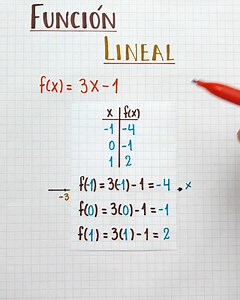 FUNCIÓN
LINEAL
f(x) = 3x-1
x f(x)
-1 -4
0 -1
1 2
f(-1) = 3(-1) - 1 = -4 x
-3
f(0) = 3(0) - 1 = -1
f(1) = 3(1) - 1 = 2